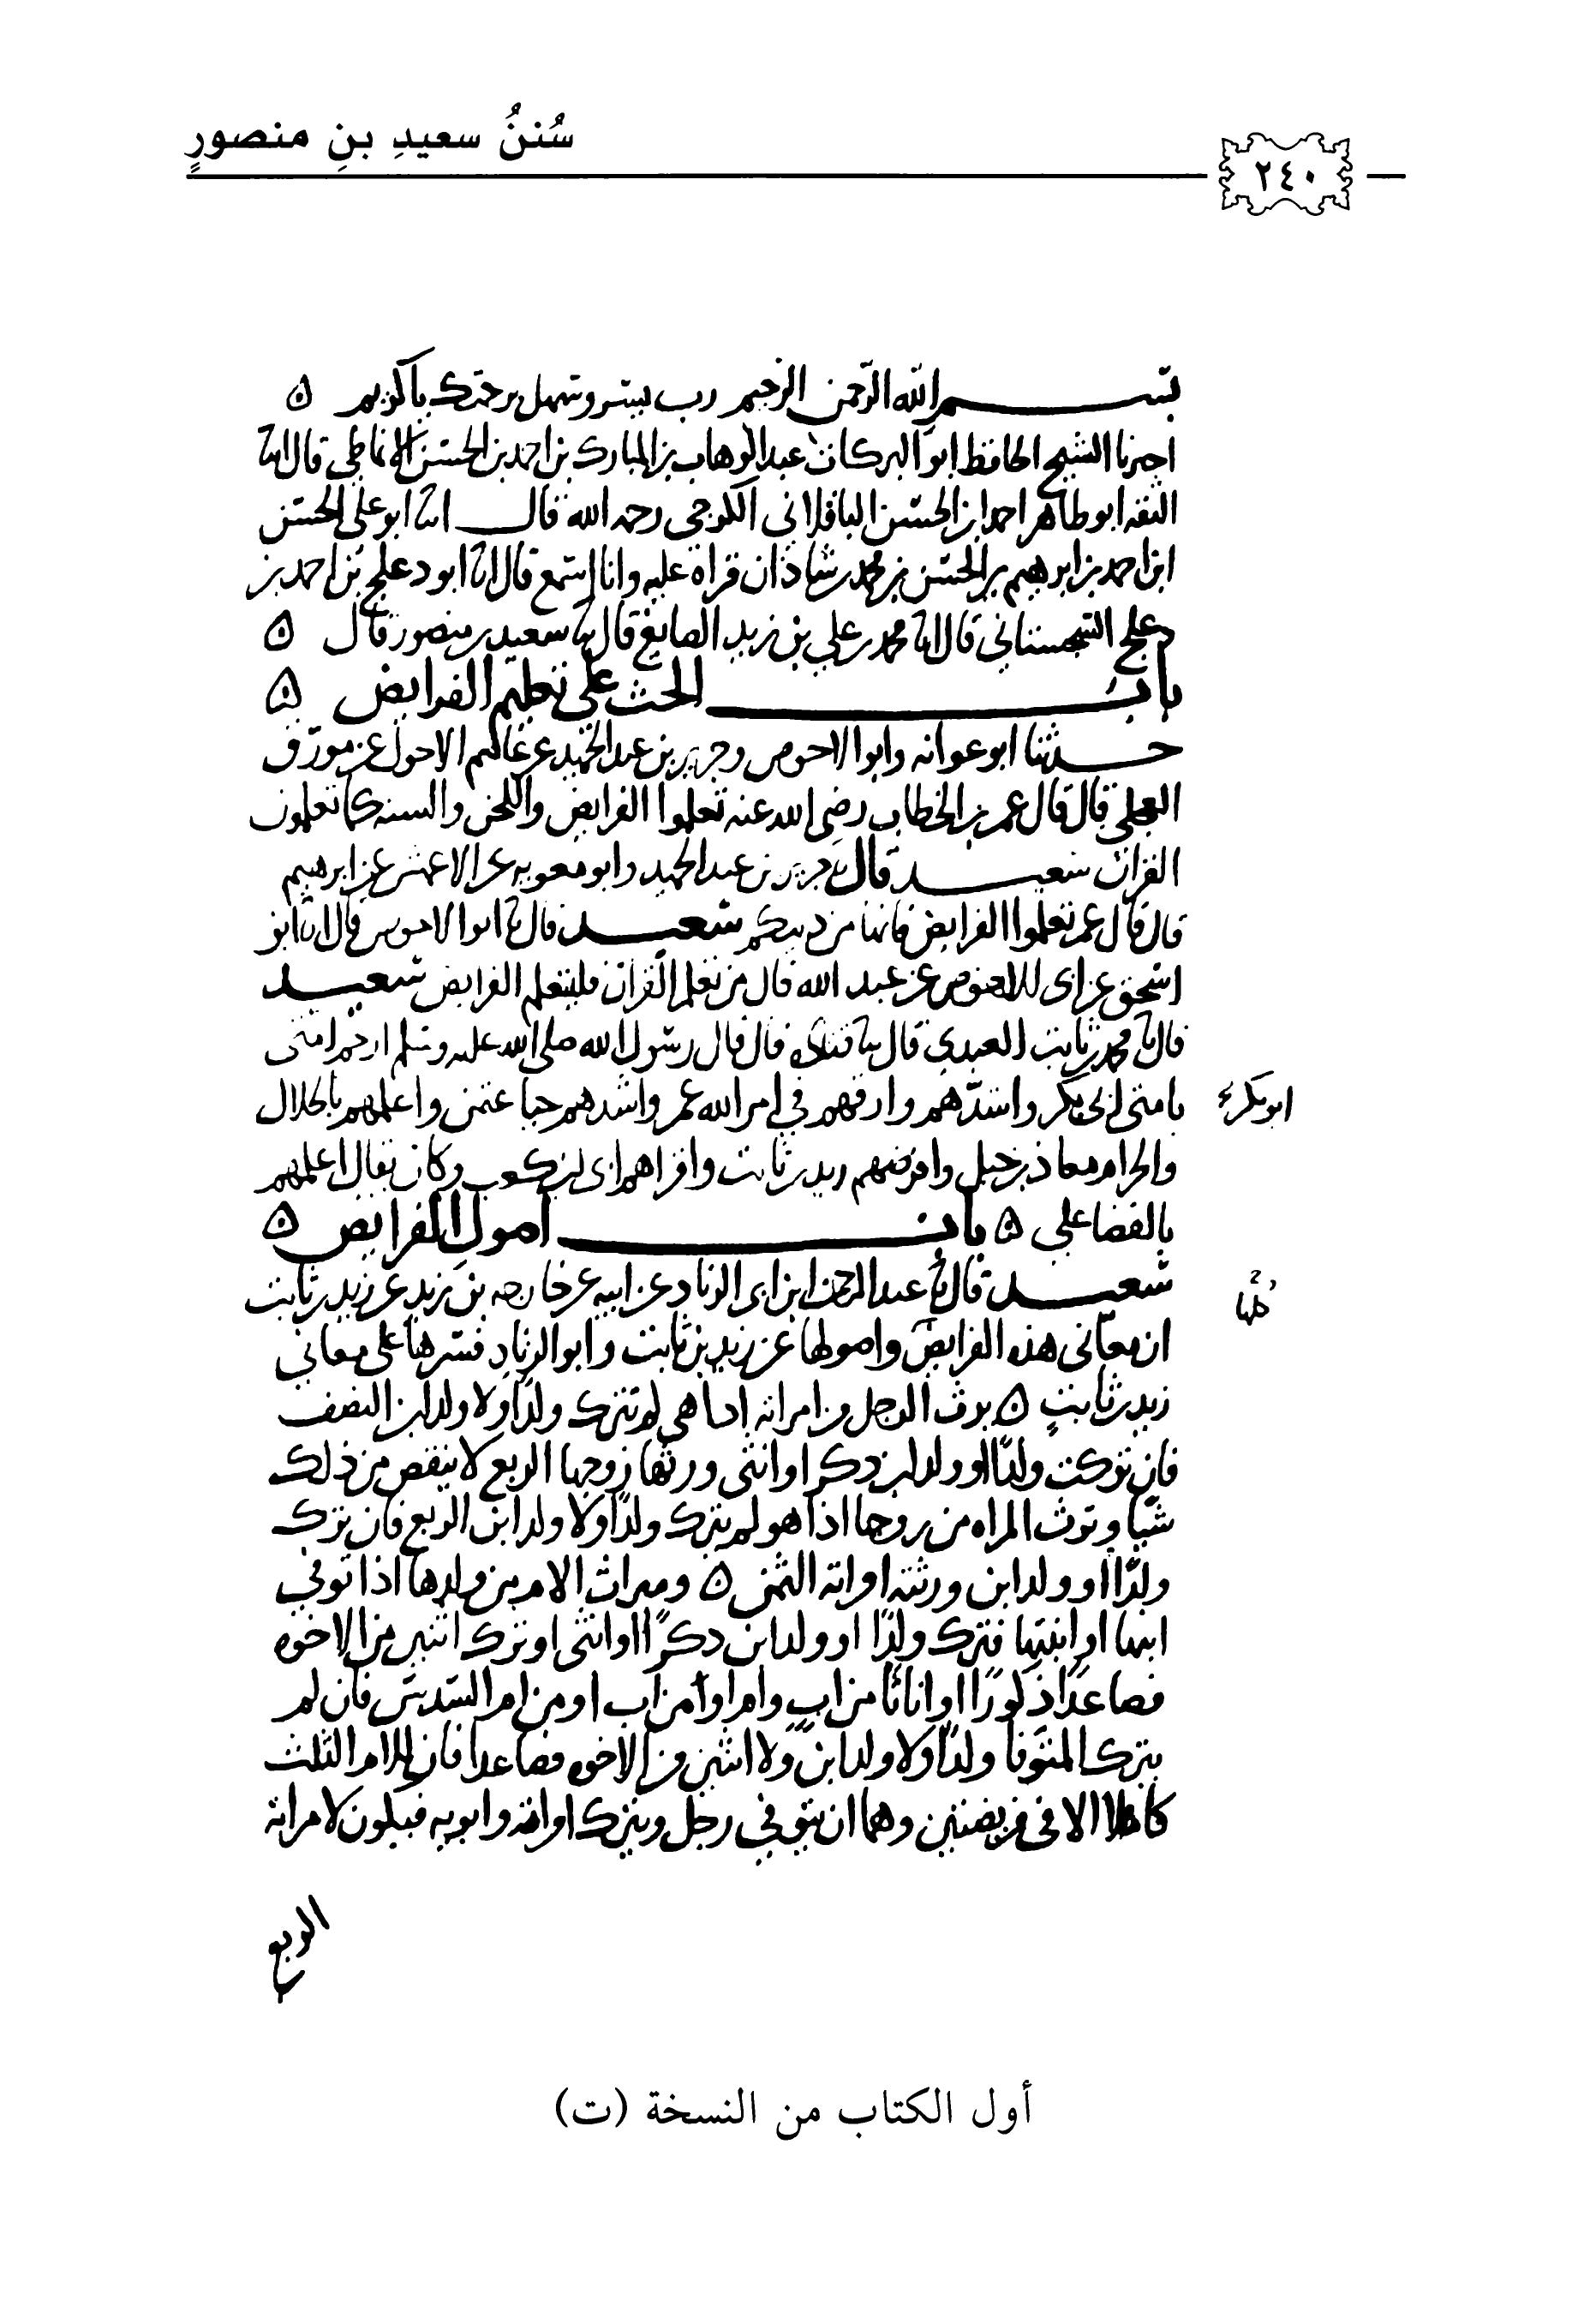 سُننُ سعيدِ بنِ منصورٍ
٢٤٠
بسم الله الرحمن الرحيم رب يسر وسهل برحمتك يا كريم ه
اخبرنا الشيخ الحافظ ابو البركات عبد الوهاب بن المبارك بن احمد بن الحسن الانماطي قال انا
الثقه ابو طاهر احمد ابن الحسن الباقلاني الكرجي رحمه الله قال انا ابو علي الحسن
ابن احمد بن ابرهيم بن الحسن بن محمد بن شاذان قراة عليه وانا اسمع قال انا ابو دعلج بن احمد بن
دعلج السجستاني قال انا محمد بن علي بن زيد الصايغ قال نا سعيد بن منصور قال ه
باب الحث على تعليم الفرايض ه
حدثنا ابو عوانه وابو الاحوص وجرير بن عبد الحميد عن عاصم الاحول عن مورق
العجلي قال قال عمر بن الخطاب رضي الله عنه تعلموا الفرايض واللحن والسنه كما تعلمون
القران سعيد قال نا جرير بن عبد الحميد وابو معويه عن الاعمش عن ابرهيم
قال قال عمر تعلموا الفرايض فانها من دينكم سعيد قال نا ابو الاحوص قال انا ابو
اسحق عن ابي الاحوص عن عبد الله قال من تعلم القران فليتعلم الفرايض سعيد
قال نا محمد بن ثابت العبدي قال نا قتاده قال قال رسول الله صلى الله عليه وسلم ارحم امتي
بامتي ابو بكر واشدهم وارقهم في امر الله عمر واشدهم حيا عثمن واعلمهم بالحلال
ابو بكر
والحرام معاذ بن جبل وافرضهم زيد بن ثابت واقراهم ابي بن كعب وكان يقال اعلمهم
بالقضا علي ه باب اصول الفرايض ه
سعيد قال نا عبد الرحمن ابن ابي الزناد عن ابيه عن خارجه بن زيد عن زيد بن ثابت
ان معاني هذه الفرايض واصولها عن زيد بن ثابت وابو الزناد فسرها على معاني
كلها
زيد بن ثابت ه يرث الرجل من امراته اذا هي لم تترك ولدًا ولا ولد ابن النصف
فان تركت ولدًا او ولد ابن ذكر او انثى ورثها زوجها الربع لا ينقص من ذلك
شيا وترث المراه من زوجها اذا هو لم يترك ولدًا ولا ولد ابن الربع فان ترك
ولدًا او ولد ابن ورثته امراته الثمن ه وميراث الام من ولدها اذا توفي
ابنها او ابنتها فترك ولدًا او ولد ابن ذكرًا او انثى او ترك اثنين من الاخوه
فصاعدًا ذكورًا او اناثًا من اب وام او من اب او من ام السدس فان لم
يترك المتوفا ولدًا ولا ولد ابن ولا اثنين من الاخوه فصاعدا فان للام الثلث
كاملا الا في فريضتين وهما ان يتوفي رجل ويترك امراته وابويه فيكون لامراته
الربع
أول الكتاب من النسخة (ت)